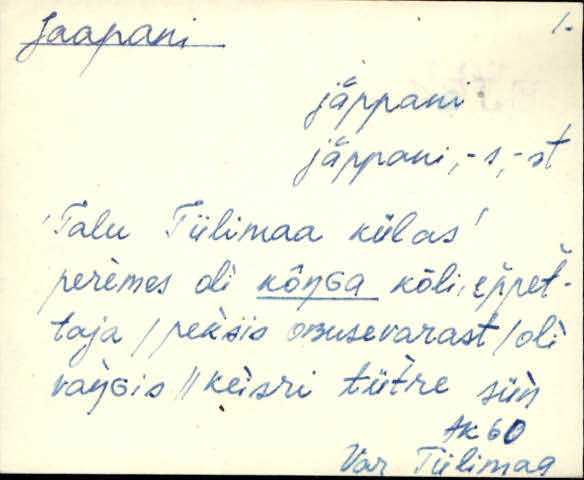 Jaapani 1.
jäppani
jäppani, -s, -st
'Talu Tiilimaa külas'
perèmes oli kõŋGa kõli, eppèt-
taja / peksìs oʙusevarast / olì
vaŋGis // keìsri tütre siìn
AK 60
Var Tiilimaa